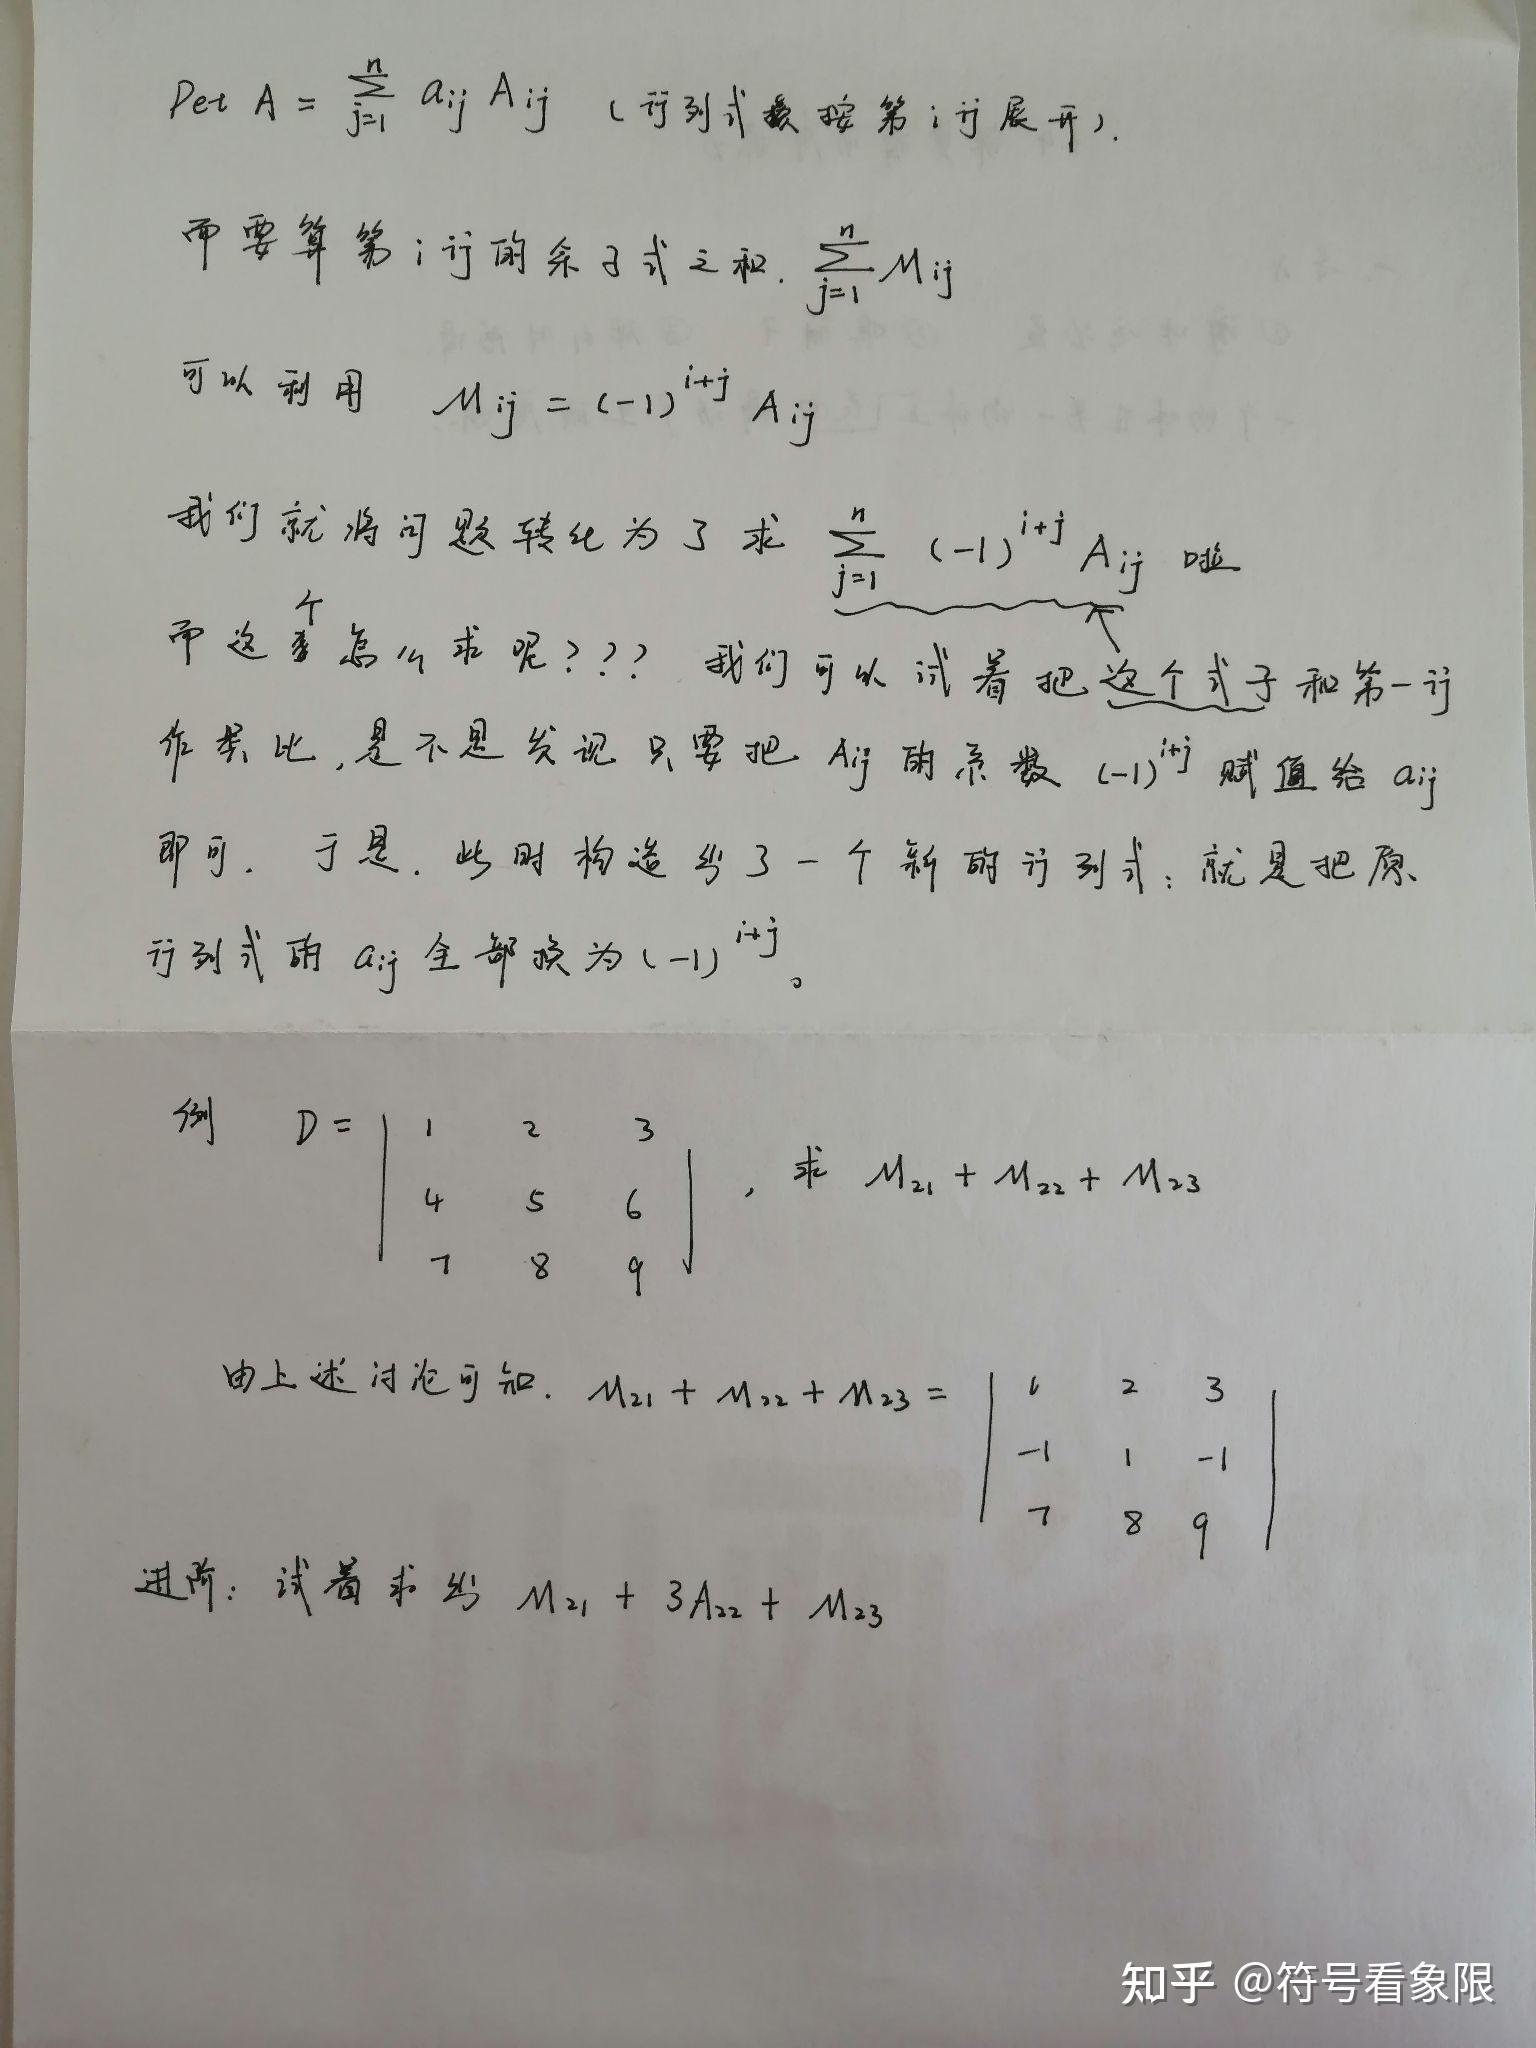 Det A = ∑_{j=1}^{n} a_{ij} A_{ij} (行列式按第i行展开).
而要算第i行的余子式之和. ∑_{j=1}^{n} M_{ij}
可以利用 M_{ij} = (-1)^{i+j} A_{ij}
我们就将问题转化为了求 ∑_{j=1}^{n} (-1)^{i+j} A_{ij} 啦
而这个怎么求呢??? 我们可以试着把这个式子和第一行
作类比,是不是发现只要把 A_{ij} 的系数 (-1)^{i+j} 赋值给 a_{ij}
即可. 于是.此时构造出了一个新的行列式:就是把原
行列式的 a_{ij} 全部换为 (-1)^{i+j}。
例 D = | 1 2 3 | , 求 M_{21} + M_{22} + M_{23}
4 5 6
7 8 9
由上述讨论可知. M_{21} + M_{22} + M_{23} = | 1 2 3 |
-1 1 -1
7 8 9
进阶: 试着求出 M_{21} + 3A_{22} + M_{23}
知乎 @符号看象限